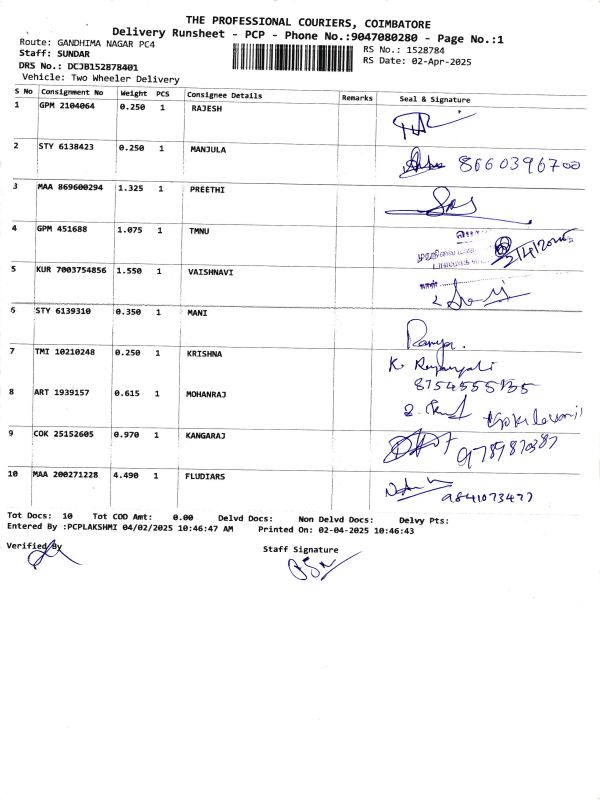 THE PROFESSIONAL COURIERS, COIMBATORE
Delivery Runsheet - PCP - Phone No.:9047080280 - Page No.:1
Route: GANDHIMA NAGAR PC4
RS No.: 1528784
Staff: SUNDAR
RS Date: 02-Apr-2025
DRS No.: DCJB152878401
Vehicle: Two Wheeler Delivery
S No Consignment No Weight PCS Consignee Details Remarks Seal & Signature
1 GPM 2104064 0.250 1 RAJESH
2 STY 6138423 0.250 1 MANJULA 8660396700
3 MAA 869600294 1.325 1 PREETHI
4 GPM 451688 1.075 1 TMNU
5 KUR 7003754856 1.550 1 VAISHNAVI
6 STY 6139310 0.350 1 MANI
Ramya.
7 TMI 10210248 0.250 1 KRISHNA K.
8754555135
8 ART 1939157 0.615 1 MOHANRAJ
9 COK 25152605 0.970 1 KANGARAJ 9789870387
10 MAA 200271228 4.490 1 FLUDIARS 9841073477
Tot Docs: 10 Tot COD Amt: 0.00 Delvd Docs: Non Delvd Docs: Delvy Pts:
Entered By :PCPLAKSHMI 04/02/2025 10:46:47 AM Printed On: 02-04-2025 10:46:43
Verified By
Staff Signature